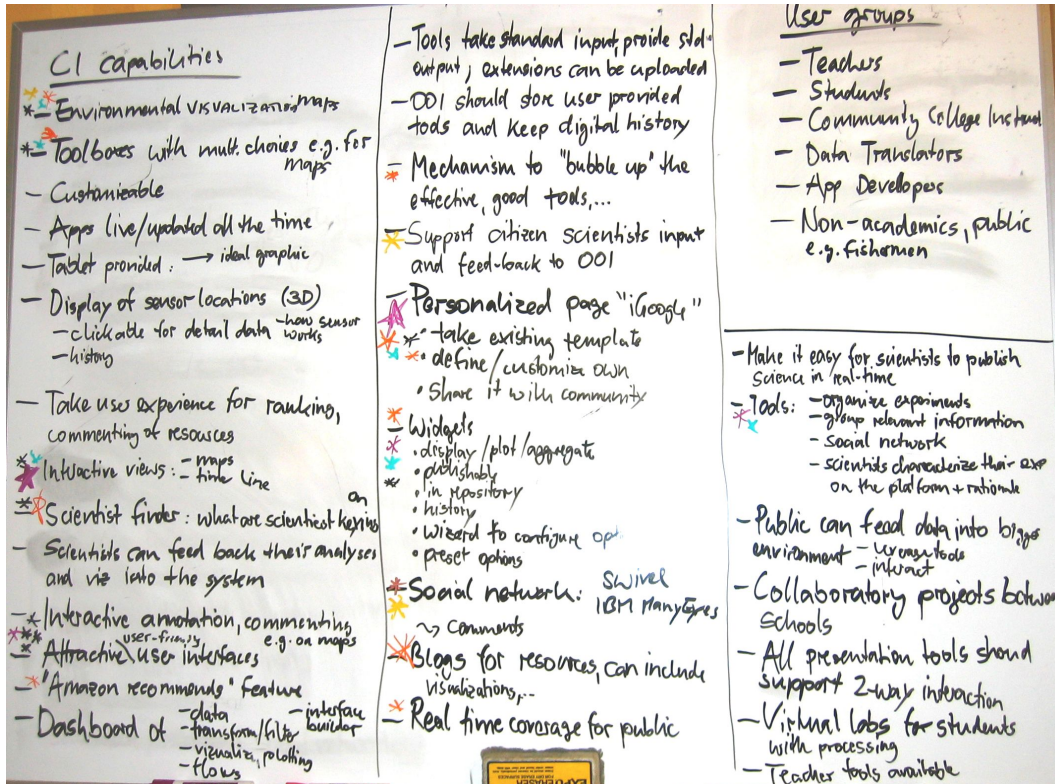 CI capabilities
- Environmental visualization, maps
- Toolboxes with mult. choices e.g. for
maps
- Customizeable
- Apps live/updated all the time
- Tablet provided: → ideal graphic
- Display of sensor locations (3D)
- clickable for detail data - how sensor
works
- history
- Take user experience for ranking,
commenting of resources
- Interactive views: - maps
- time line
on
- Scientist finder: what are scientist keying
- Scientists can feed back their analyses
and viz into the system
- Interactive annotation, commenting
e.g. on maps
user-friendly
- Attractive \ user interfaces
- "Amazon recommends" feature
- Dashboard of - data - interface
builder
- transform/filter
- vizualize, plotting
- flows
- Tools take standard input, provide std.
output, extensions can be uploaded
- OOI should store user provided
tools and keep digital history
- Mechanism to "bubble up" the
effective, good tools,...
- Support citizen scientists input
and feed-back to OOI
- Personalized page "iGoogle"
• take existing template
• define/customize own
• Share it with community
- Widgets
• display/plot/aggregate
• publishable
• in repository
• history
• wizard to configure opt
• preset options
- Social network: Swivel
IBM ManyEyes
~> Comments
- Blogs for resources, can include
visualizations,...
- Real time coverage for public
User groups
- Teachers
- Students
- Community College Instruct
- Data Translators
- App Developers
- Non-academics, public
e.g. fishermen
- Make it easy for scientists to publish
Science in real-time
- Tools: - organize experiments
- group relevant information
- social network
- scientists characterize their exp
on the platform + rationale
- Public can feed data into bigger
environment - leverage tools
- interact
- Collaboratory projects between
schools
- All presentation tools should
support 2-way interaction
- Virtual labs for students
with processing
- Teacher tools available